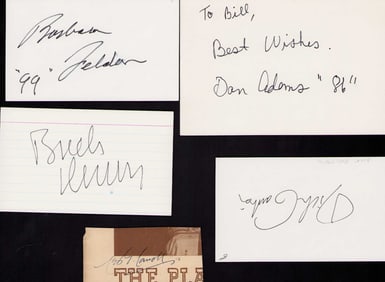 Barbara
"99" Feldon
To Bill,
Best Wishes.
Don Adams "86"
Buck
Henry
Dick Gautier
THE PLA